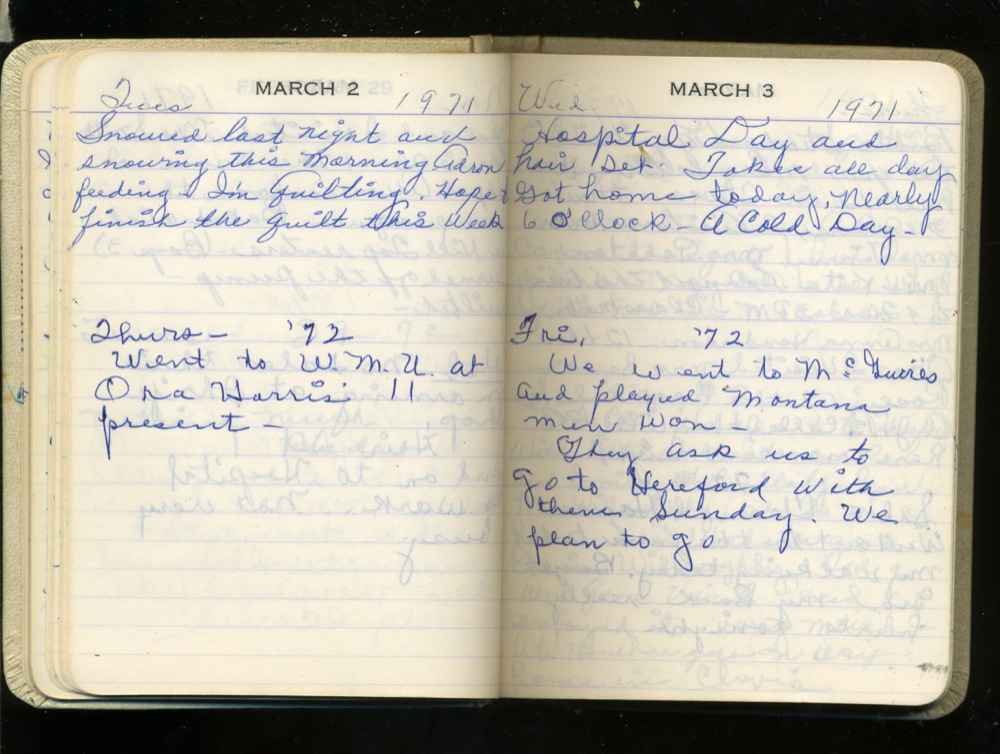 MARCH 2
Tues 1971
Snowed last night and
snowing this morning Aaron
feeding I'm Quilting. Hope
finish the quilt this week
Thurs - '72
Went to W.M.U. at
Ora Harris 11
present -
MARCH 3
Wed 1971
Hospital Day and
hair set Takes all day
Got home today, nearly
6 O'Clock - A Cold Day -
Fri, '72
We went to
and played Montana
men won -
They ask us to
go to Hereford with
them Sunday. We
plan to go